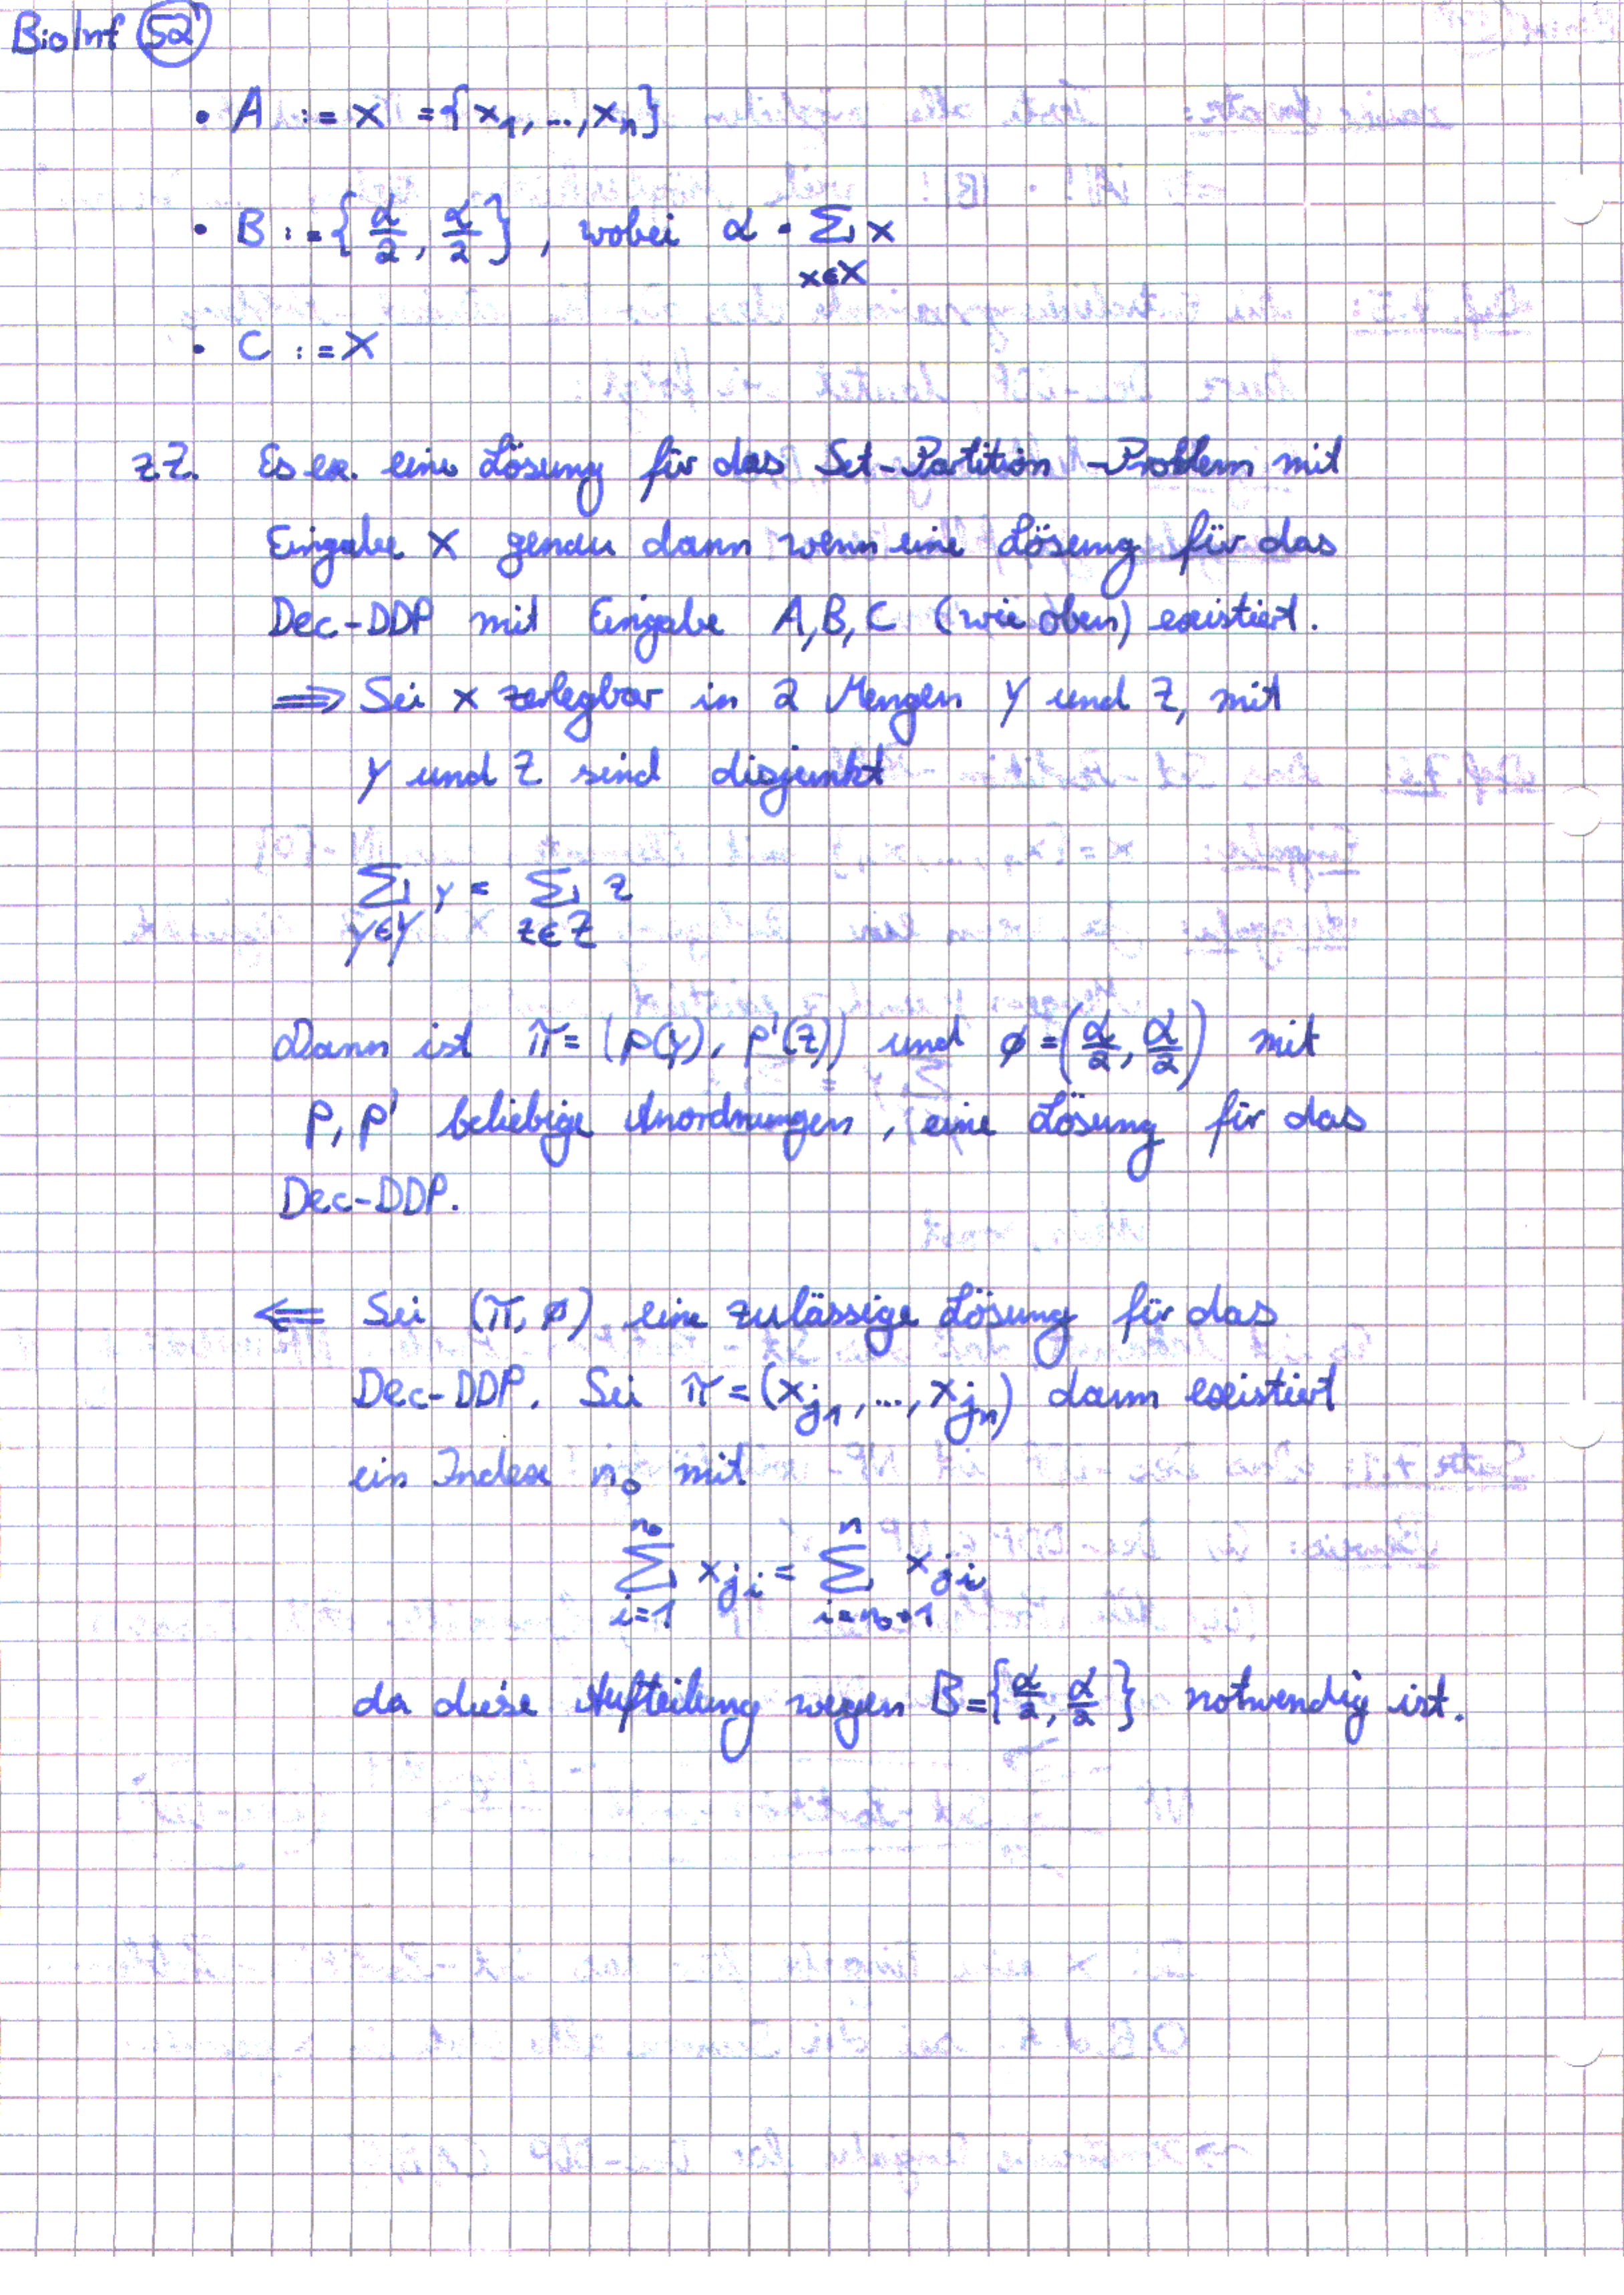 BioInf 52
• A := X = {x₁, ..., xₙ}
• B := {α/2, α/2}, wobei α = Σ_{x∈X} x
• C := X
z.Z. Es ex. eine Lösung für das Set-Partition-Problem mit
Eingabe X genau dann wenn eine Lösung für das
Dec-DDP mit Eingabe A, B, C (wie oben) existiert.
⟹ Sei X zerlegbar in 2 Mengen Y und Z, mit
Y und Z sind disjunkt
Σ_{y∈Y} y = Σ_{z∈Z} z
Dann ist π = (p(y), p'(z)) und ϕ = (α/2, α/2) mit
p, p' beliebige Anordnungen, eine Lösung für das
Dec-DDP.
⟸ Sei (π, ϕ) eine zulässige Lösung für das
Dec-DDP. Sei π = (x_{j₁}, ..., x_{jₙ}) dann existiert
ein Index n₀ mit
Σ_{i=1}^{n₀} x_{j_i} = Σ_{i=n₀+1}^{n} x_{j_i}
da diese Aufteilung wegen B = {α/2, α/2} notwendig ist.